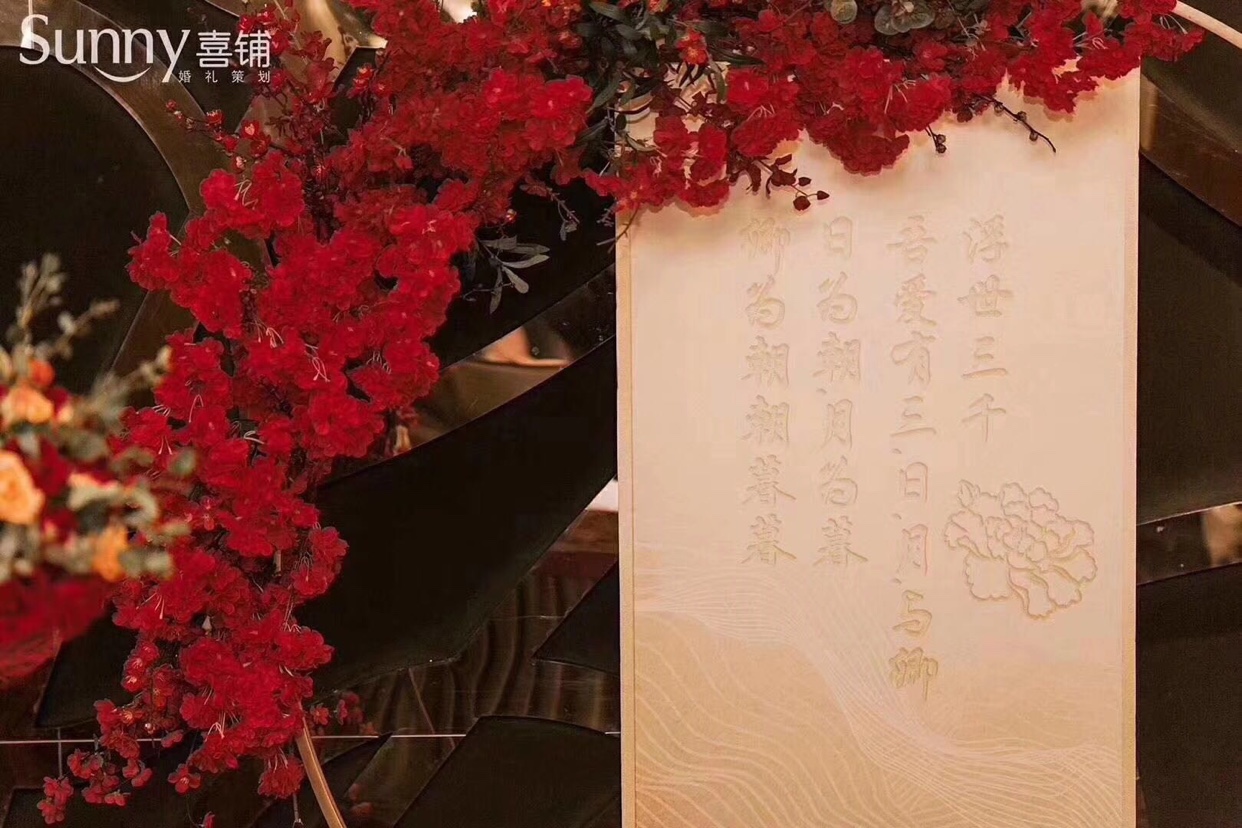 Sunny 喜铺
婚礼策划
浮世三千
吾爱有三日、月、与卿
日为朝、月为暮
卿为朝朝暮暮